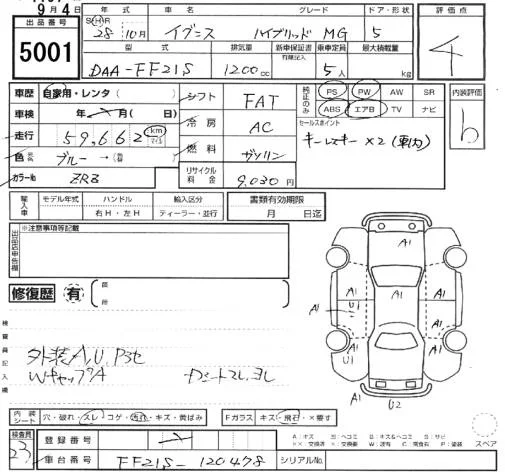 9月4日
出品番号
5001
年式 車名 グレード ドア・形状
SHR 28年 10月 イグニス ハイブリッド MG 5
型式 排気量 新車保証書 乗車定員 最大積載量
有期記入
DAA-FF21S 1200cc 5人 kg
評価点
4
車歴 自家用・レンタ ( )
車検 年 月( 日)
走行 59,662 km マイル
色 ブルー→(
カラーNo. ZR3
シフト FAT
冷房 AC
燃料 ガソリン
リサイクル料金 9,030円
純正のみ PS PW AW SR
ABS エアB TV ナビ
セールスポイント
キーレスキー×2 (車内)
内装評価
b
輸入車 モデル年式 ハンドル 輸入区分
年 右H・左H ディーラー・並行
書類有効期限
月 日迄
※注意事項等記載
修復歴 有
検査員記入欄
外装A,U,P3セ
WキャップA
内装シート 穴・破れ・スレ・コゲ・汚れ・キズ・黄ばみ
Fガラス キズ・飛石・×要す
検査員
23
登録番号
車台番号 FF21S-120478
シリアルNo.
A1
A1 A1 A1
U1
A1 A1
U1
A1
U2
スペア
A:キズ U:ヘコミ B:キズ&ヘコミ S:サビ